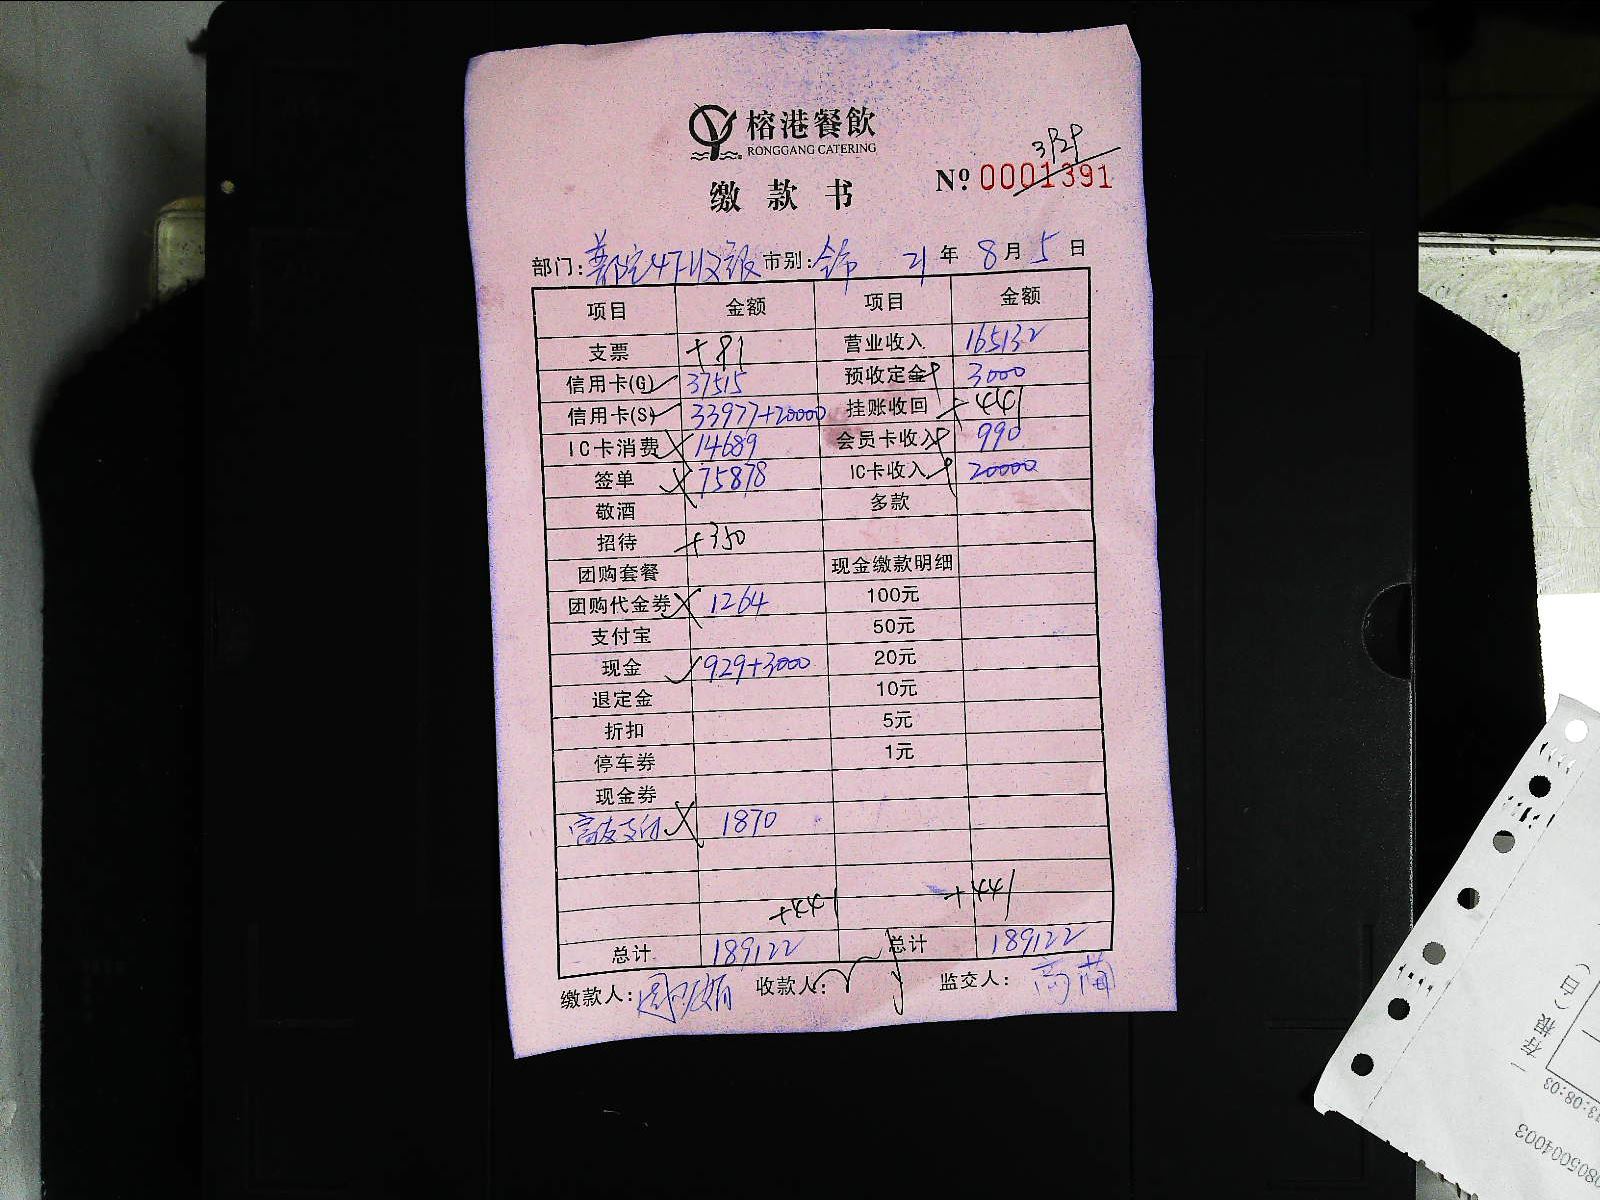 榕港餐飲
RONGGANG CATERING
缴款书 Nº 0001391
部门: 市别: 21年8月5日
项目 金额 项目 金额
支票 +91 营业收入 165132
信用卡(G) 37515 预收定金 3000
信用卡(S) 33977+20000 挂账收回 +441
IC卡消费 14689 会员卡收入 990
签单 75878 IC卡收入 20000
敬酒 多款
招待 +350
团购套餐 现金缴款明细
团购代金券 1264 100元
支付宝 50元
现金 929+3000 20元
退定金 10元
折扣 5元
停车券 1元
现金券
支付 1870
+441 +441
总计 189122 总计 189122
缴款人: 收款人: 监交人:
存根(白)
13:08:03
0805004003